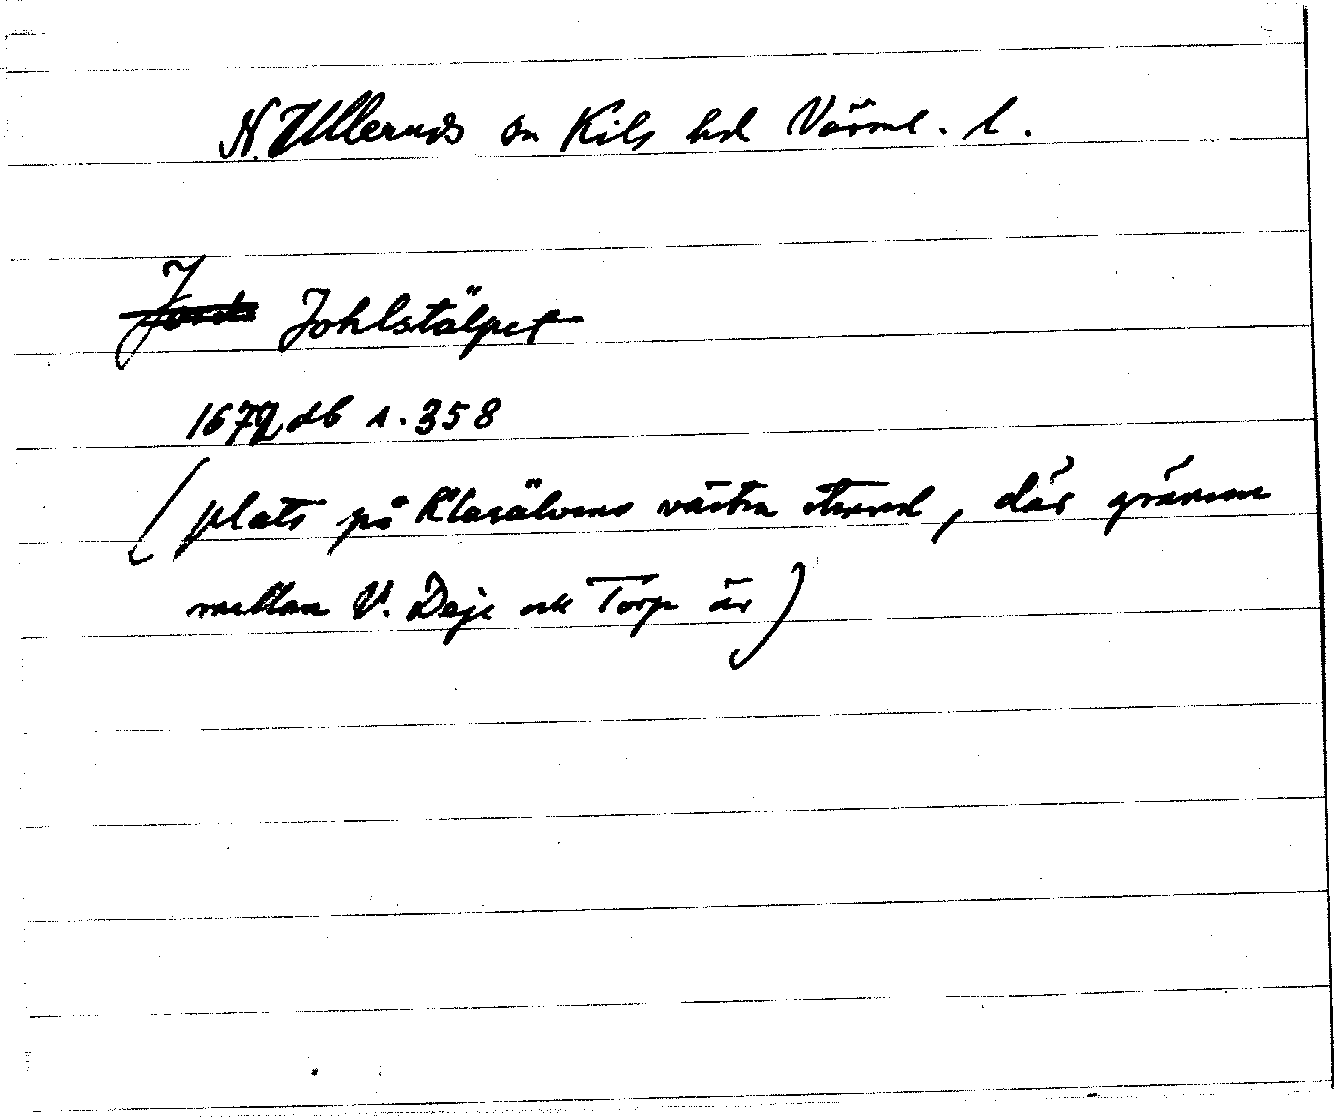 N. Ulleruds sn Kils hd Värml. l.
Johlstälpet
1679 db s. 358
(plats på Klarälvens västra strand, där gränsen
mellan V. Deje och Torp är)